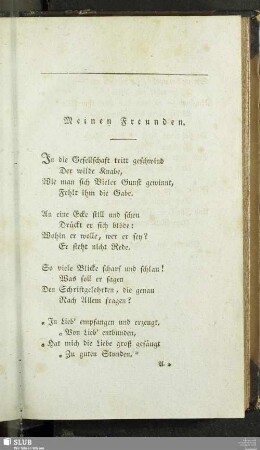 Meinen Freunden.
In die Gesellschaft tritt geschwind
Der wilde Knabe,
Wie man sich Vieler Gunst gewinnt,
Fehlt ihm die Gabe.
An eine Ecke still und scheu
Drückt er sich blöde:
Wohin er wolle, wer er sey?
Er steht nicht Rede.
So viele Blicke scharf und schlau!
Was soll er sagen
Den Schriftgelehrten, die genau
Nach Allem fragen?
„In Lieb' empfangen und erzeugt,
„Von Lieb' entbunden,
„Hat mich die Liebe groß gesäugt
„Zu guten Stunden.“
SLUB